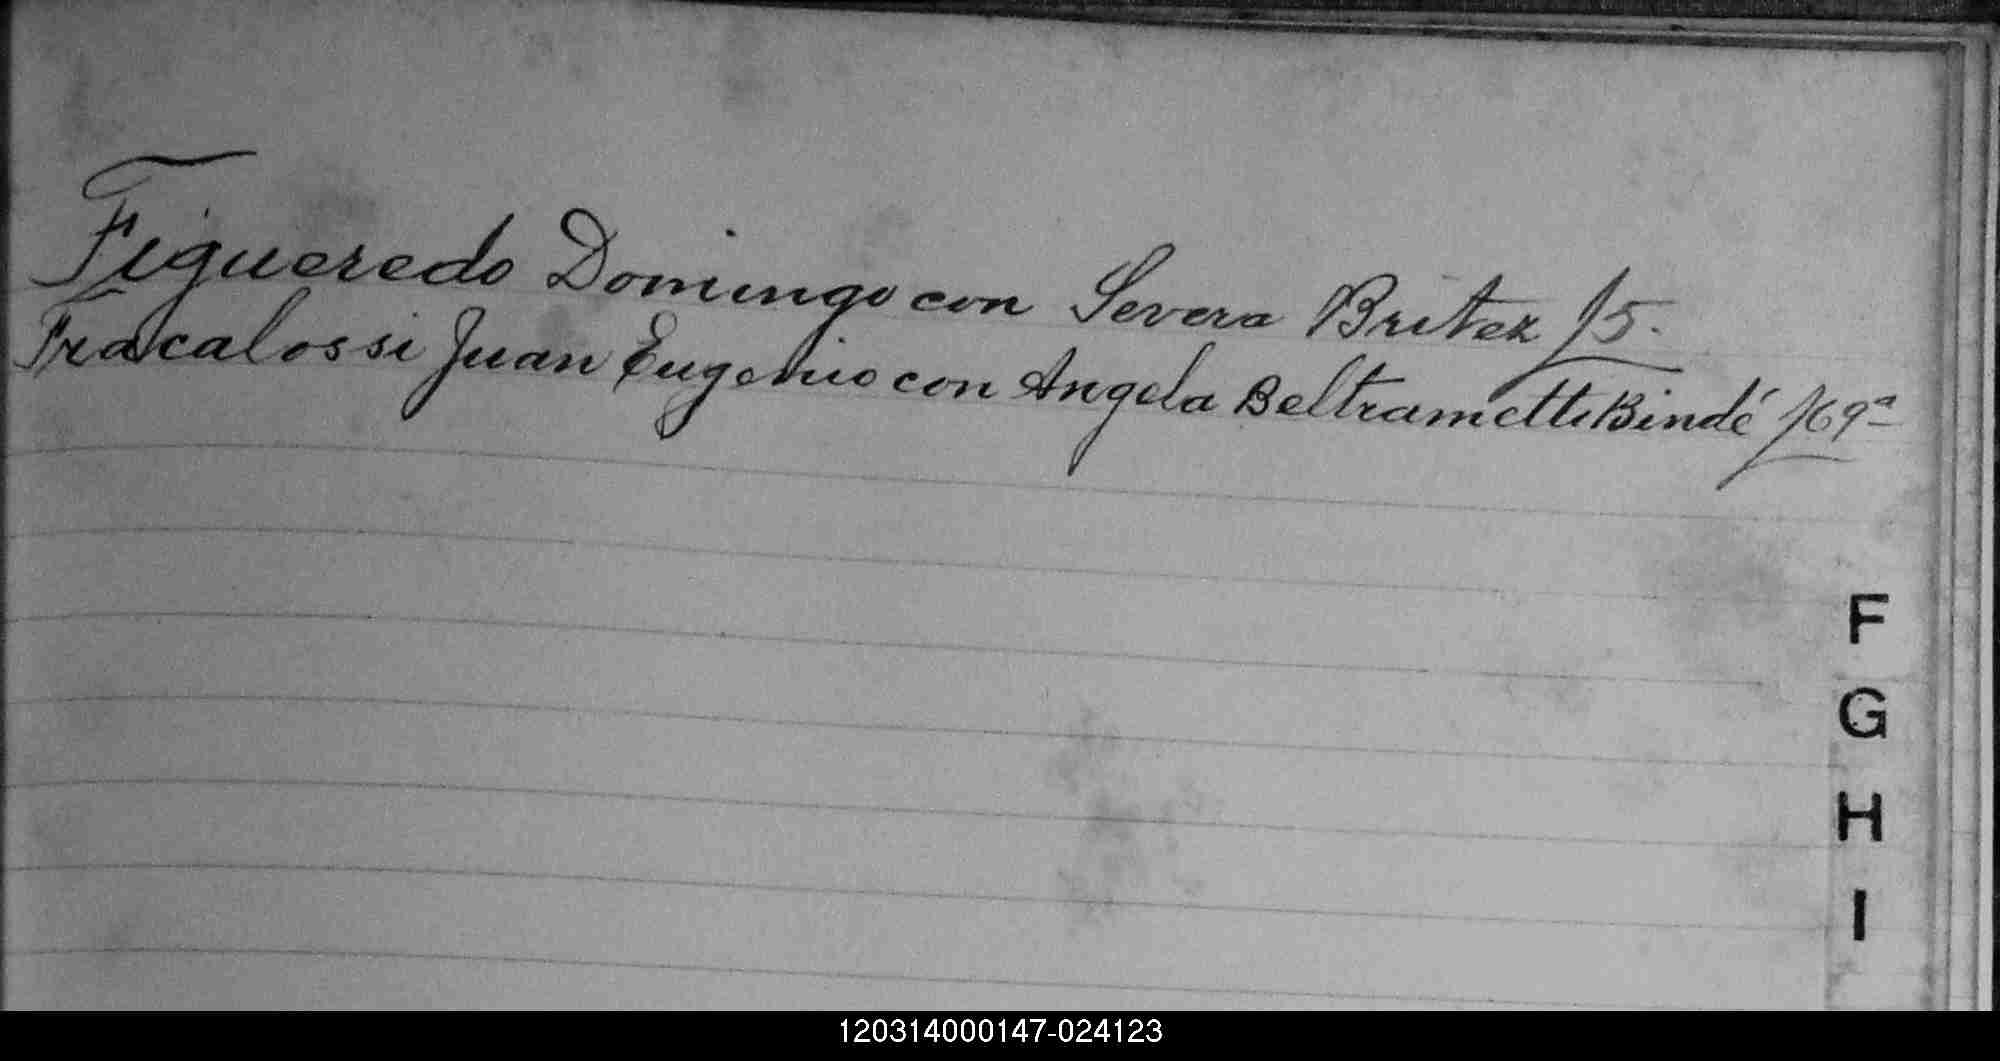 Figueredo Domingo con Severa Britez f5.
Fracalossi Juan Eugenio con Angela Beltrametti Bindé f69ª
F
G
H
I
120314000147-024123